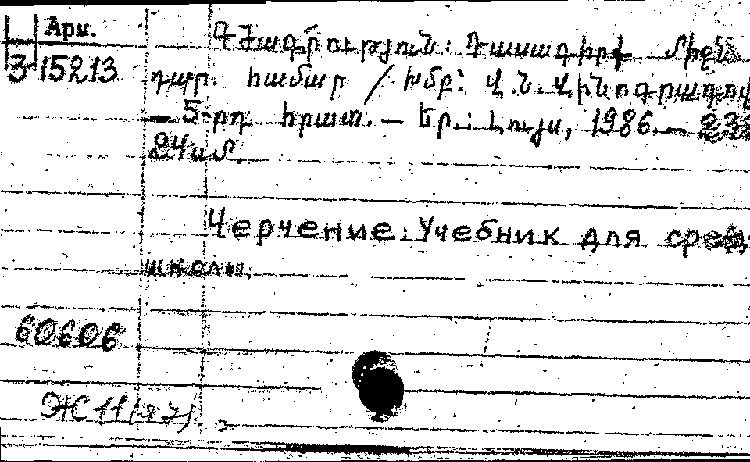 Арм.
Գծագրություն: Դասագիրք միջն
3-15213 դպր. համար / Խմբ: Վ.Ն. Վինոգրադով
— 5-րդ հրատ. — Եր.: Լույս, 1986. —
24սմ.
Черчение. Учебник для сред
школы.
60606